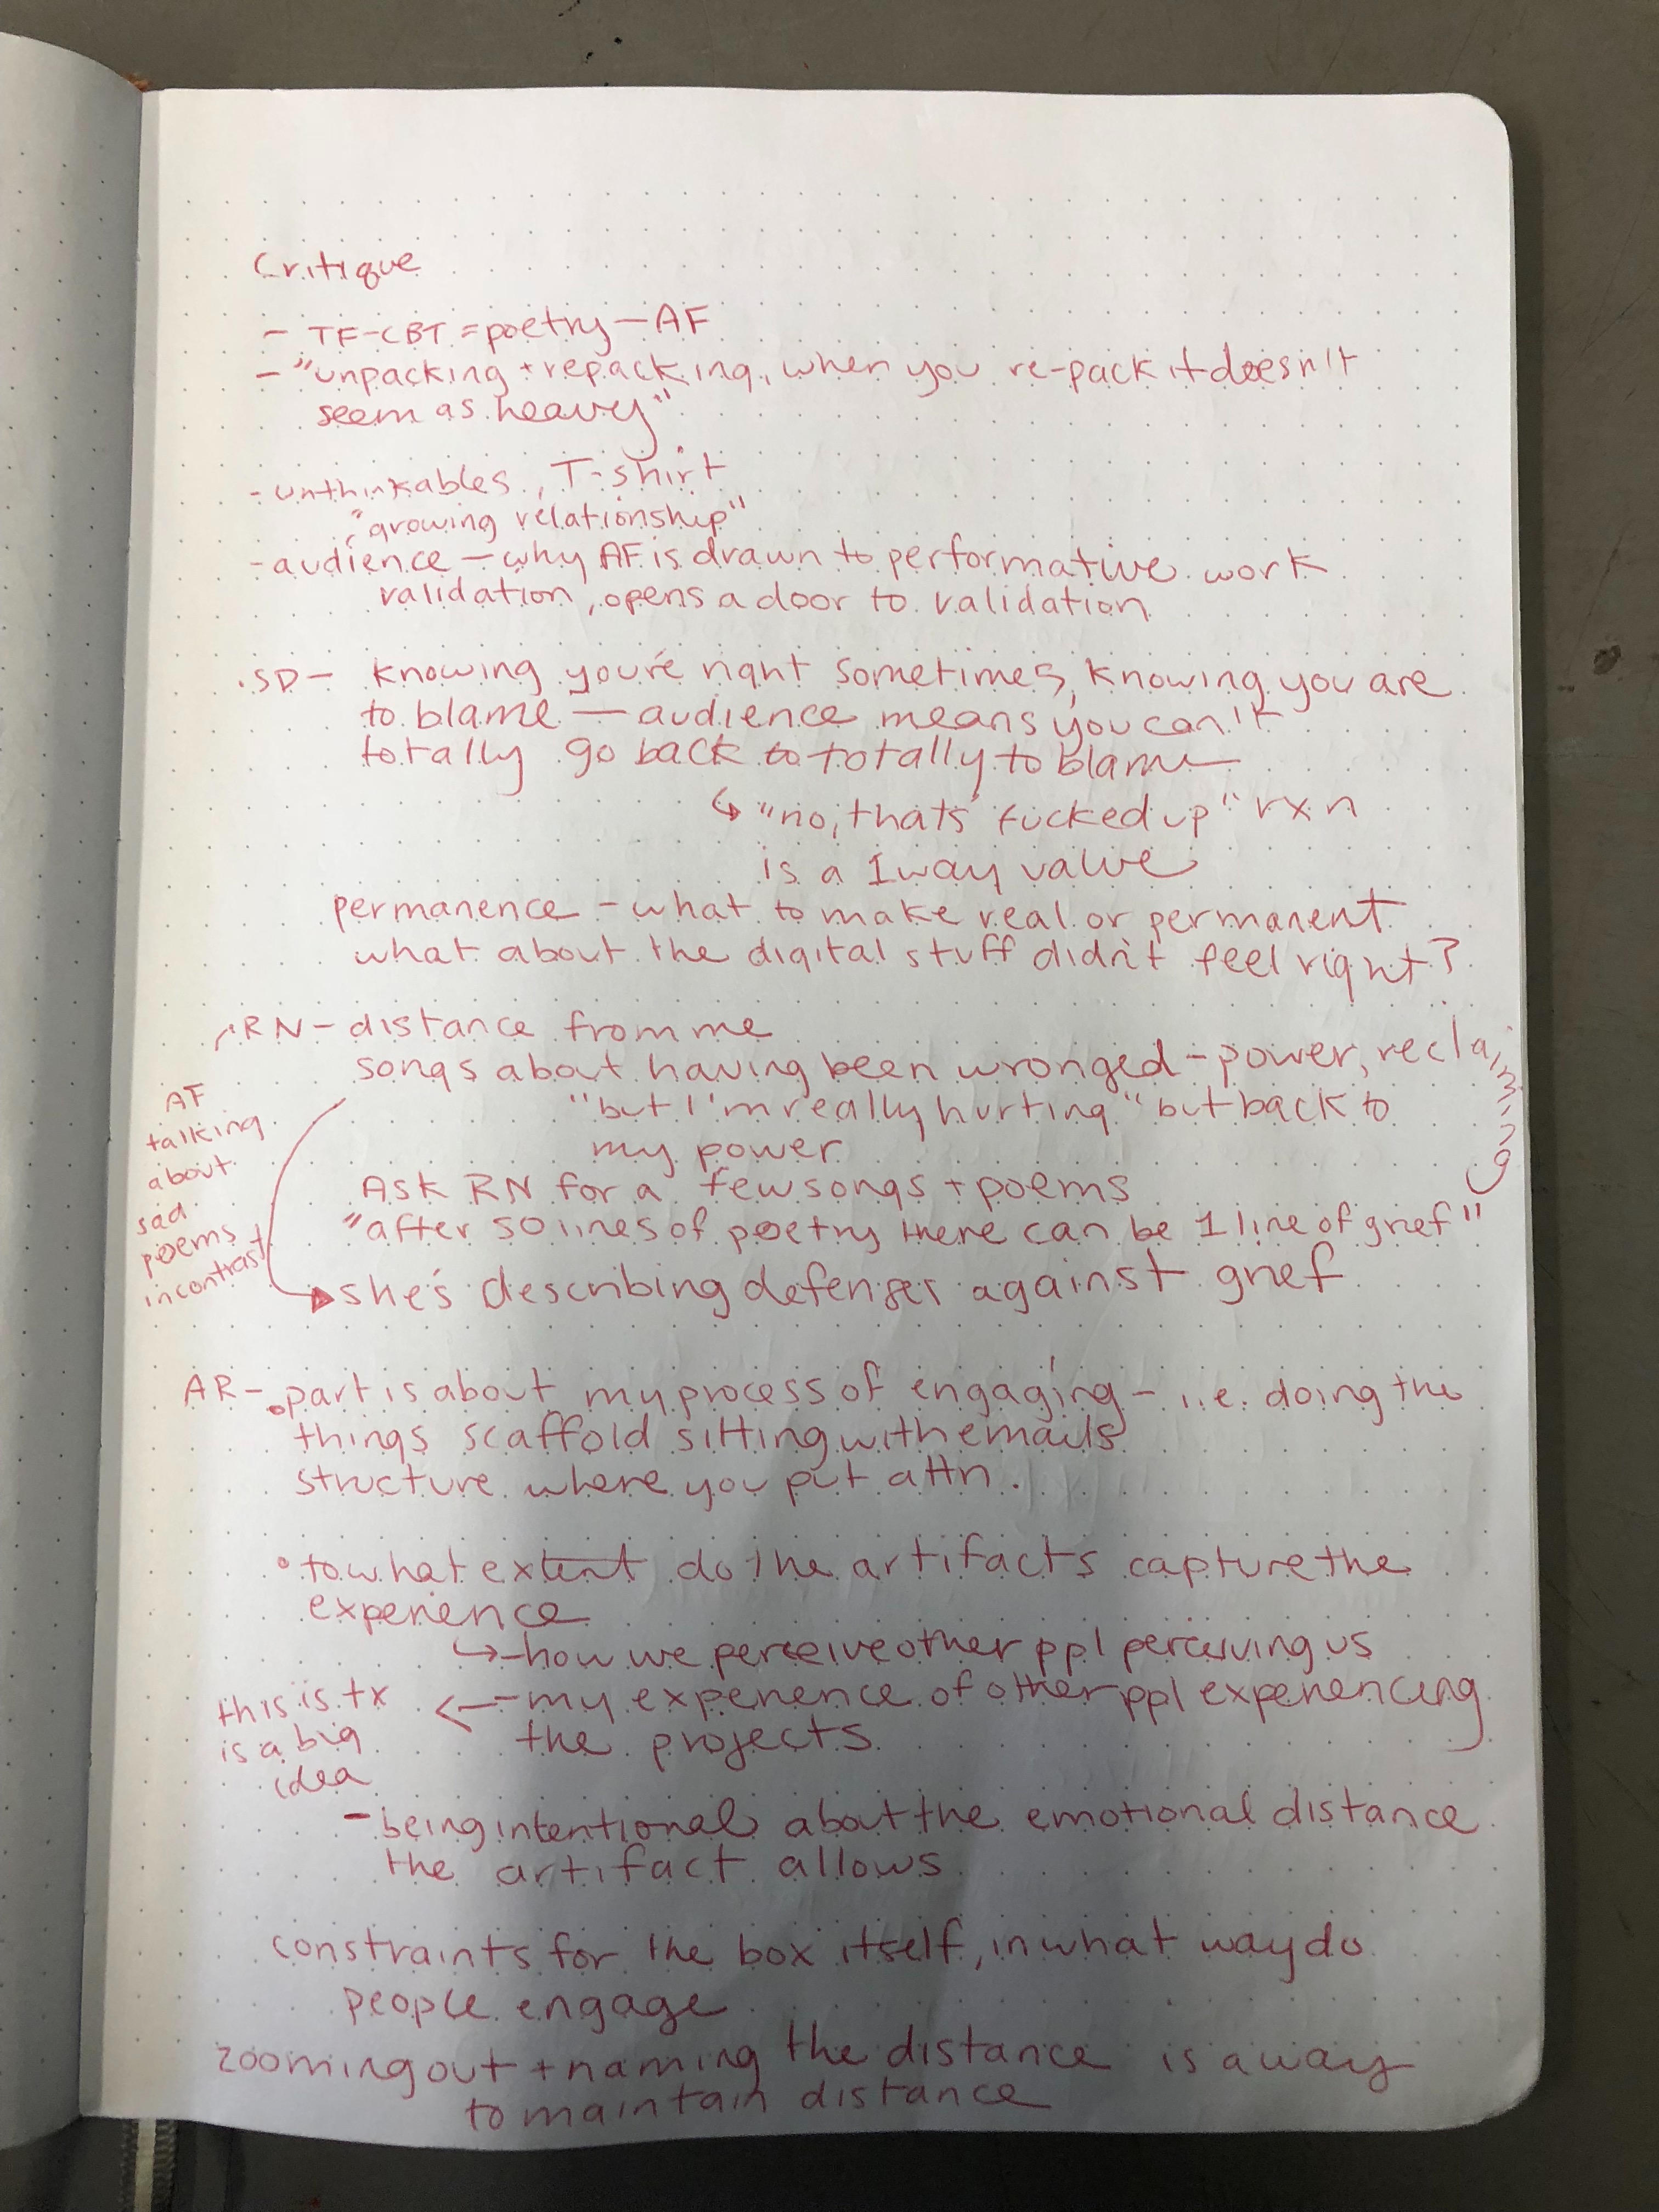 Critique
- TF-CBT = poetry — AF
- "unpacking + repacking, when you re-pack it doesn't
seem as heavy"
- unthinkables, T-shirt
"growing relationship"
- audience — why AF is drawn to performative work
validation, opens a door to validation
SD — knowing you're right sometimes, knowing you are
to blame — audience means you can't
totally go back to totally to blame
↳ "no, that's fucked up" rxn
is a 1 way valve
permanence - what to make real or permanent
what about the digital stuff didn't feel right?
RN — distance from me
songs about having been wronged - power, reclaiming
"but I'm really hurting" but back to
my power
Ask RN for a few songs + poems
"after 50 lines of poetry there can be 1 line of grief"
she's describing defenses against grief
AF
talking
about
sad
poems
in contrast
AR — • part is about my process of engaging — i.e. doing the
things scaffold sitting with emails
structure where you put attn.
• to what extent do the artifacts capture the
experience
↳ - how we perceive other ppl perceiving us
← - my experience of other ppl experiencing
the projects
this is tx
is a big
idea
- being intentional about the emotional distance
the artifact allows
constraints for the box itself, in what way do
people engage
zooming out + naming the distance is a way
to maintain distance